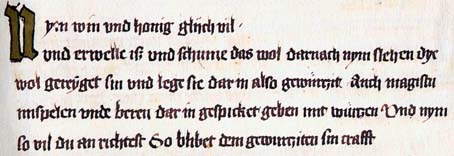 Nym win vnd honig glich vil ·
vnd erwelle iß vnd schume das wol darnach nym slehen dye
wol gereyget sin vnd lege sie dar in also gewürtzit Auch magistu
mispelen vnde beren dar in gespicket geben mit würtzen Vnd nym
so vil du an richtest So blibet dem gewurtziten sin crafft